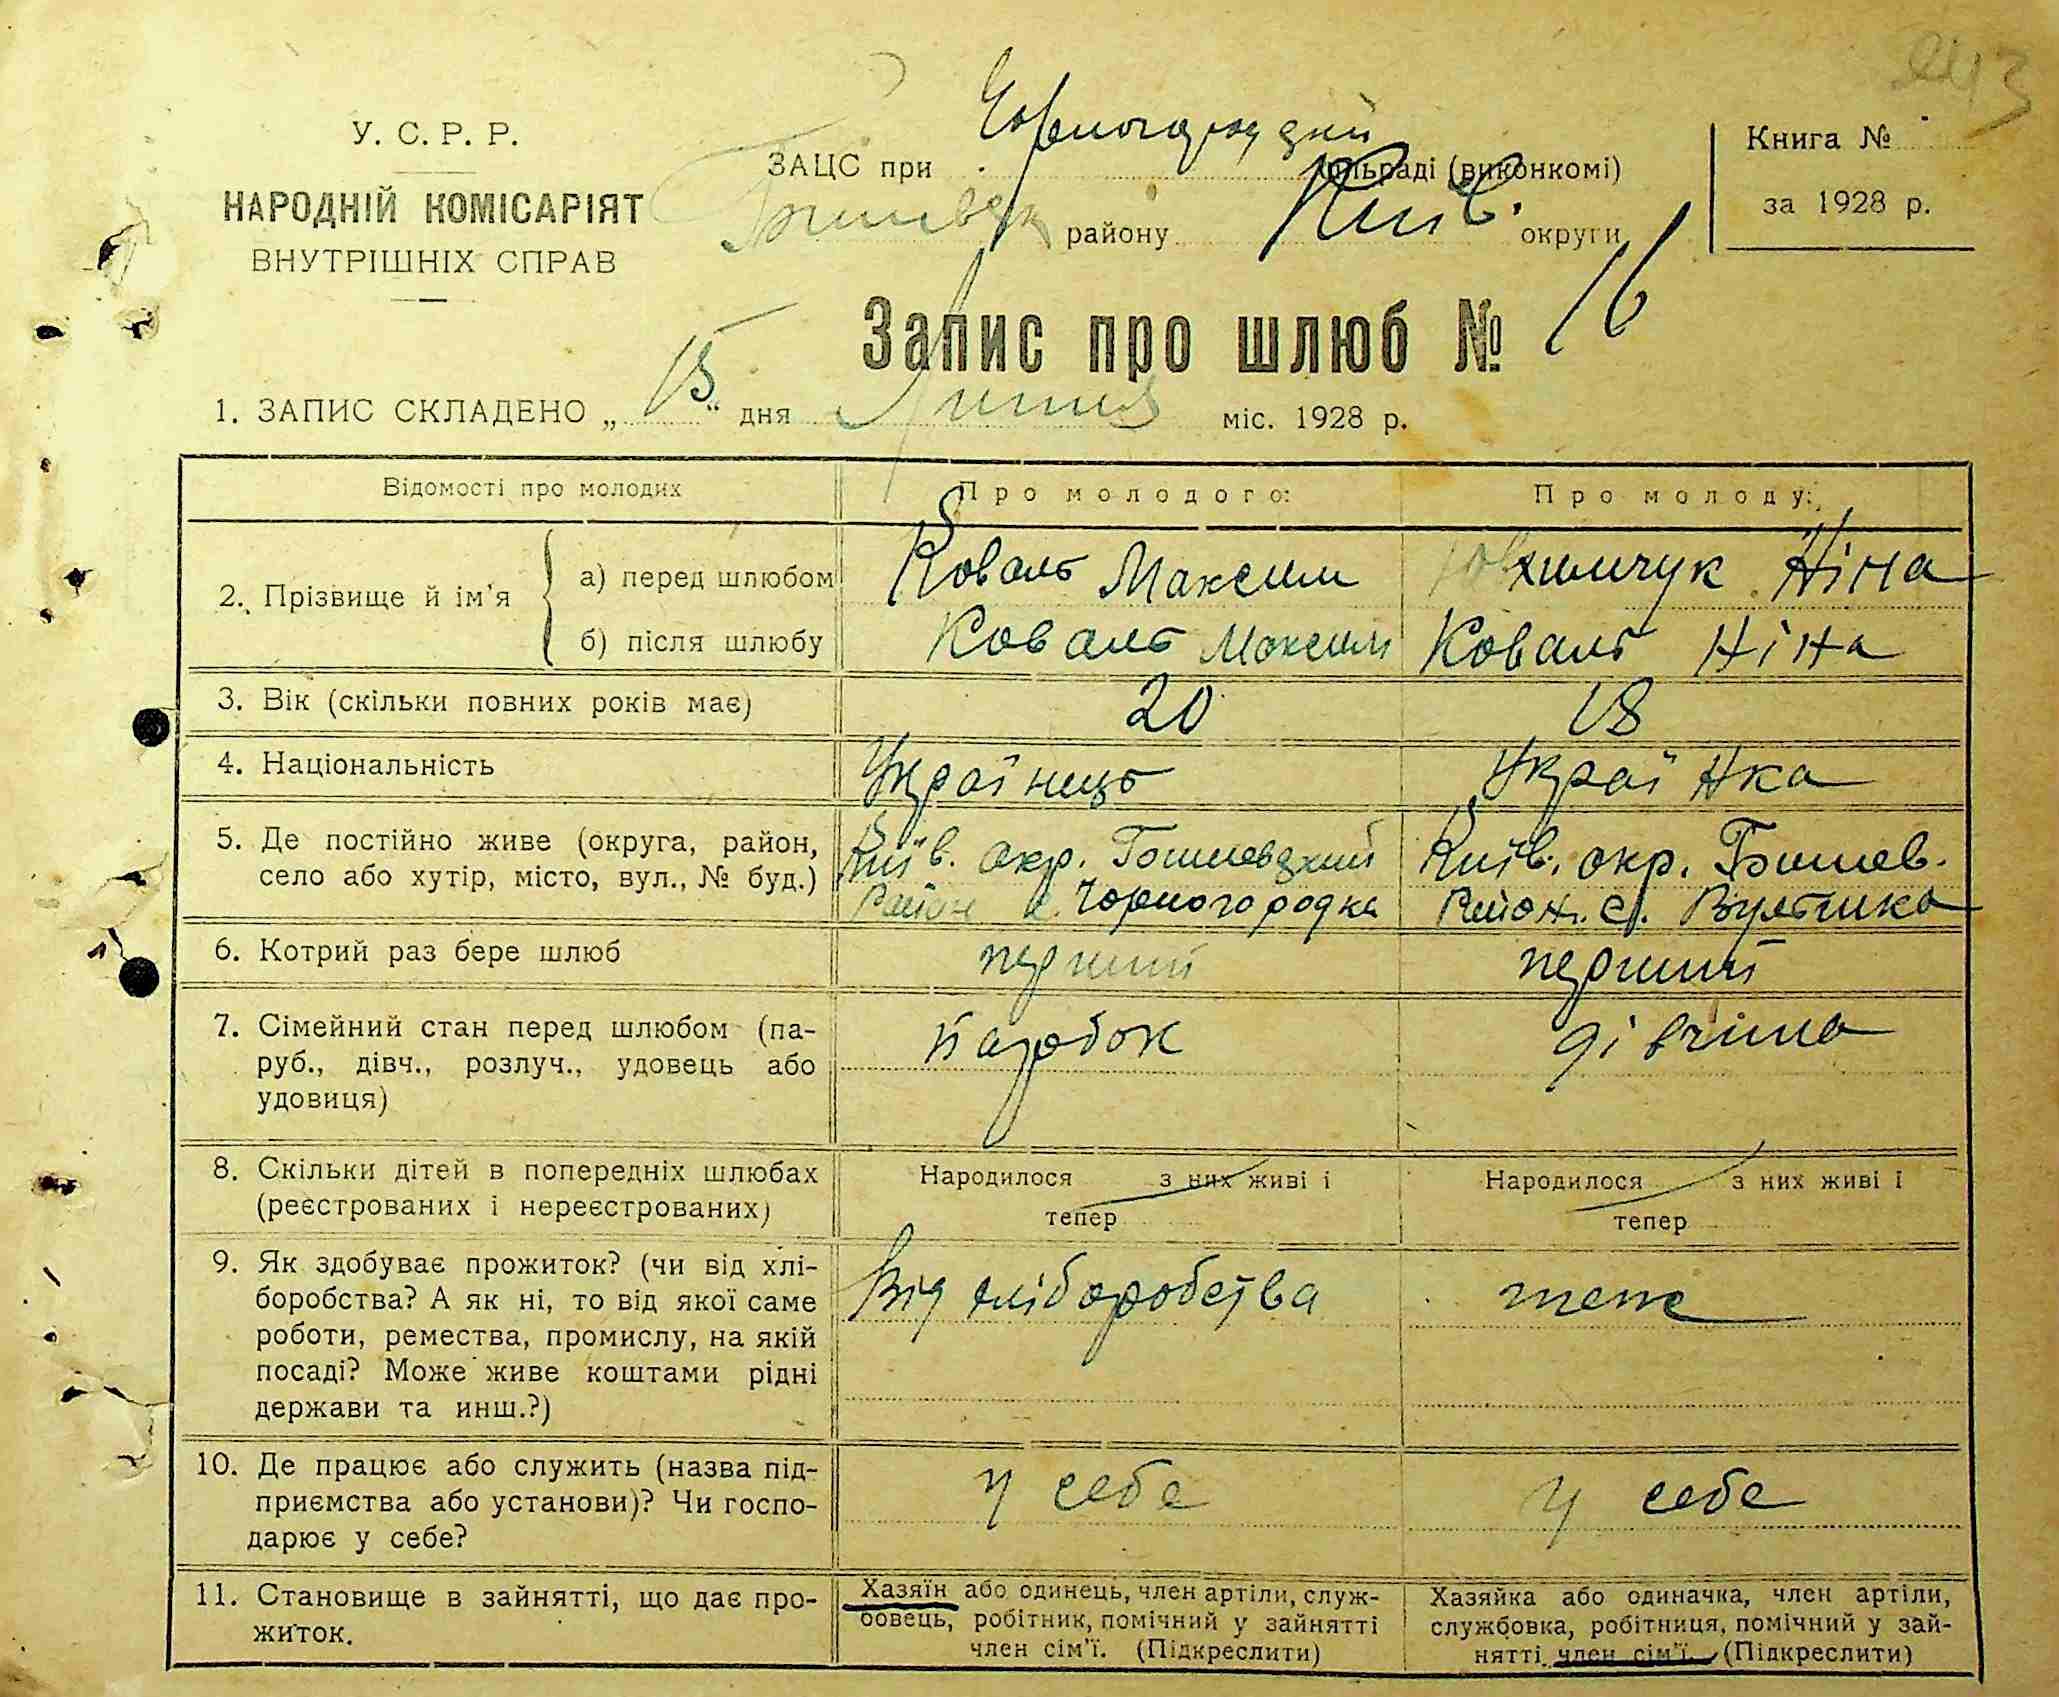 243
У. С. Р. Р.
НАРОДНІЙ КОМІСАРІЯТ
ВНУТРІШНІХ СПРАВ
ЗАЦС при Чорногородцкій сільраді (виконкомі)
району Київ. округи
Книга №
за 1928 р.
Запис про шлюб № 16
1. ЗАПИС СКЛАДЕНО „ 15 “ дня Липня міс. 1928 р.
Відомості про молодих Про молодого: Про молоду:
2. Прізвище й ім'я
а) перед шлюбом Коваль Максим Юхимчук Ніна
б) після шлюбу Коваль Максим Коваль Ніна
3. Вік (скільки повних років має) 20 18
4. Національність Українець Українка
5. Де постійно живе (округа, район, Київ. окр. Бишевський Київ. окр. Бишев.
село або хутір, місто, вул., № буд.) Район с. Чорногородка Район. с. Вульшка
6. Котрий раз бере шлюб перший перший
7. Сімейний стан перед шлюбом (па- Парубок дівчина
руб., дівч., розлуч., удовець або
удовиця)
8. Скільки дітей в попередніх шлюбах Народилося з них живі і Народилося з них живі і
(реєстрованих і нереєстрованих) тепер тепер
9. Як здобуває прожиток? (чи від хлі- Від хліборобства теж
боробства? А як ні, то від якої саме
роботи, ремества, промислу, на якій
посаді? Може живе коштами рідні
держави та инш.?)
10. Де працює або служить (назва під- у себе у себе
приємства або установи)? Чи госпо-
дарює у себе?
11. Становище в зайнятті, що дає про- Хазяїн або одинець, член артіли, служ- Хазяйка або одиначка, член артіли,
житок. бовець, робітник, помічний у зайнятті службовка, робітниця, помічний у зай-
член сім'ї. (Підкреслити) нятті член сім'ї. (Підкреслити)